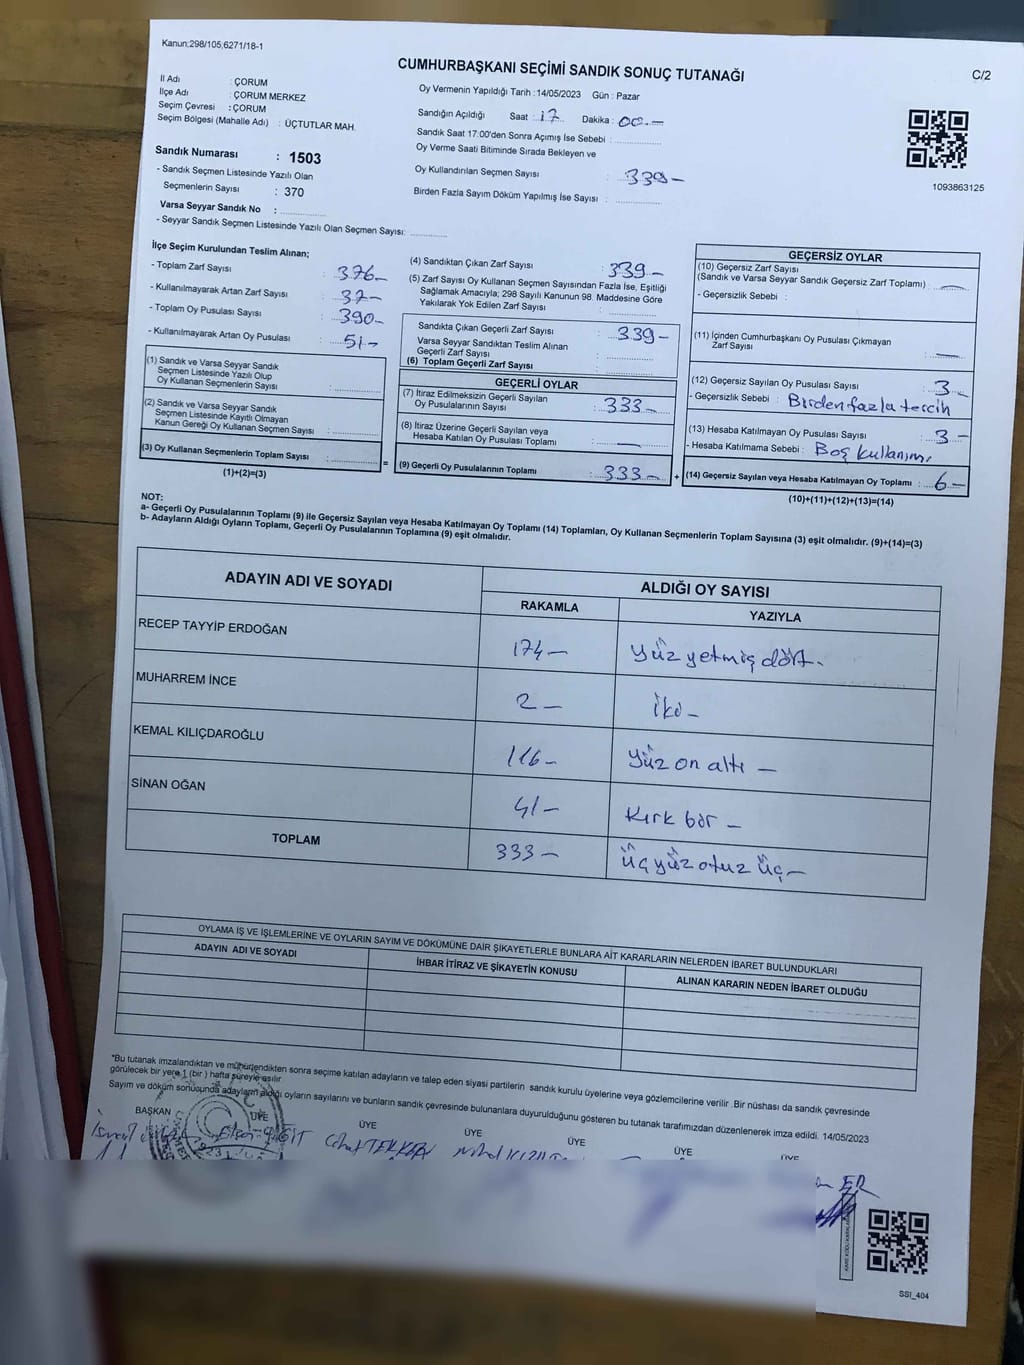 Kanun;298/105,6271/18-1
CUMHURBAŞKANI SEÇİMİ SANDIK SONUÇ TUTANAĞI
C/2
İl Adı : ÇORUM
İlçe Adı : ÇORUM MERKEZ
Seçim Çevresi : ÇORUM
Seçim Bölgesi (Mahalle Adı) : ÜÇTUTLAR MAH.
Oy Vermenin Yapıldığı Tarih :14/05/2023 Gün : Pazar
Sandığın Açıldığı Saat : 17 Dakika : 00.-
Sandık Saat 17:00'den Sonra Açımış İse Sebebi :
Oy Verme Saati Bitiminde Sırada Bekleyen ve
Oy Kullandırılan Seçmen Sayısı : 339-
Birden Fazla Sayım Döküm Yapılmış İse Sayısı :
1093863125
Sandık Numarası : 1503
- Sandık Seçmen Listesinde Yazılı Olan
Seçmenlerin Sayısı : 370
Varsa Seyyar Sandık No :
- Seyyar Sandık Seçmen Listesinde Yazılı Olan Seçmen Sayısı:
İlçe Seçim Kurulundan Teslim Alınan;
- Toplam Zarf Sayısı : 376-
- Kullanılmayarak Artan Zarf Sayısı : 37-
- Toplam Oy Pusulası Sayısı : 390-
- Kullanılmayarak Artan Oy Pusulası : 51-
(1) Sandık ve Varsa Seyyar Sandık
Seçmen Listesinde Yazılı Olup
Oy Kullanan Seçmenlerin Sayısı :
(2) Sandık ve Varsa Seyyar Sandık
Seçmen Listesinde Kayıtlı Olmayan
Kanun Gereği Oy Kullanan Seçmen Sayısı :
(3) Oy Kullanan Seçmenlerin Toplam Sayısı :
(1)+(2)=(3)
=
(4) Sandıktan Çıkan Zarf Sayısı : 339-
(5) Zarf Sayısı Oy Kullanan Seçmen Sayısından Fazla İse, Eşitliği
Sağlamak Amacıyla; 298 Sayılı Kanunun 98. Maddesine Göre
Yakılarak Yok Edilen Zarf Sayısı :
Sandıkta Çıkan Geçerli Zarf Sayısı : 339-
Varsa Seyyar Sandıktan Teslim Alınan
Geçerli Zarf Sayısı :
(6) Toplam Geçerli Zarf Sayısı :
GEÇERLİ OYLAR
(7) İtiraz Edilmeksizin Geçerli Sayılan
Oy Pusulalarının Sayısı : 333-
(8) İtiraz Üzerine Geçerli Sayılan veya
Hesaba Katılan Oy Pusulası Toplamı : -
(9) Geçerli Oy Pusulalarının Toplamı : 333-
+
GEÇERSİZ OYLAR
(10) Geçersiz Zarf Sayısı
(Sandık ve Varsa Seyyar Sandık Geçersiz Zarf Toplamı) : -
- Geçersizlik Sebebi :
(11) İçinden Cumhurbaşkanı Oy Pusulası Çıkmayan
Zarf Sayısı : -
(12) Geçersiz Sayılan Oy Pusulası Sayısı : 3-
- Geçersizlik Sebebi : Birden fazla tercih
(13) Hesaba Katılmayan Oy Pusulası Sayısı : 3-
- Hesaba Katılmama Sebebi : Boş kullanım.
(14) Geçersiz Sayılan veya Hesaba Katılmayan Oy Toplamı : 6-
(10)+(11)+(12)+(13)=(14)
NOT:
a- Geçerli Oy Pusulalarının Toplamı (9) ile Geçersiz Sayılan veya Hesaba Katılmayan Oy Toplamı (14) Toplamları, Oy Kullanan Seçmenlerin Toplam Sayısına (3) eşit olmalıdır. (9)+(14)=(3)
b- Adayların Aldığı Oyların Toplamı, Geçerli Oy Pusulalarının Toplamına (9) eşit olmalıdır.
ADAYIN ADI VE SOYADI
ALDIĞI OY SAYISI
RAKAMLA YAZIYLA
RECEP TAYYİP ERDOĞAN 174- Yüz yetmiş dört.
MUHARREM İNCE 2- İki-
KEMAL KILIÇDAROĞLU 116- Yüz on altı -
SİNAN OĞAN 41- Kırk bir -
TOPLAM 333- Üçyüz otuz üç-
OYLAMA İŞ VE İŞLEMLERİNE VE OYLARIN SAYIM VE DÖKÜMÜNE DAİR ŞİKAYETLERLE BUNLARA AİT KARARLARIN NELERDEN İBARET BULUNDUKLARI
ADAYIN ADI VE SOYADI İHBAR İTİRAZ VE ŞİKAYETİN KONUSU ALINAN KARARIN NEDEN İBARET OLDUĞU
*Bu tutanak imzalandıktan ve mühürlendikten sonra seçime katılan adayların ve talep eden siyasi partilerin sandık kurulu üyelerine veya gözlemcilerine verilir .Bir nüshası da sandık çevresinde
görülecek bir yere 1 (bir ) hafta süreyle asılır
Sayım ve döküm sonucunda adayların aldığı oyların sayılarını ve bunların sandık çevresinde bulunanlara duyurulduğunu gösteren bu tutanak tarafımızdan düzenlenerek imza edildi. 14/05/2023
BAŞKAN ÜYE ÜYE ÜYE ÜYE ÜYE ÜYE
ER
SSI_404